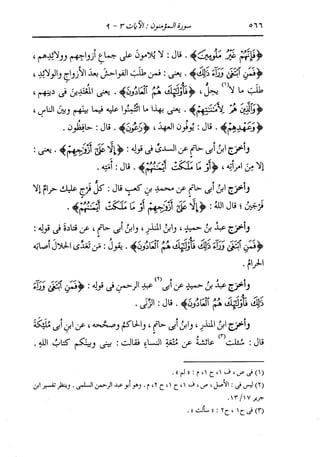 ٥٦٦ سورة المؤمنون : الآيات ٣ - ٩
﴿فَإِنَّهُمْ غَيْرُ مَلُومِينَ﴾ . قال : لا يُلامون على جماعِ أزواجِهم وولائدِهم ،
﴿فَمَنِ ابْتَغَى وَرَاءَ ذَلِكَ﴾ . يعنى : فمن طلَب الفواحشَ بعدَ الأزواجِ والولائدِ ،
طلَب ما لا(١) يحِلُّ ، ﴿فَأُولَئِكَ هُمُ الْعَادُونَ﴾ . يعنى المعتدِين فى دينِهم ،
﴿وَالَّذِينَ هُمْ لِأَمَانَاتِهِمْ﴾ . يعنى بهذا ما ائتُمنوا عليه فيما بينَهم وبينَ الناسِ ،
﴿وَعَهْدِهِمْ﴾ . قال : يُوفُون العهدَ ، ﴿رَاعُونَ﴾ . قال : حافِظون .
وأخرَج ابنُ أبى حاتمٍ عن السدىِّ فى قولِه : ﴿إِلَّا عَلَى أَزْوَاجِهِمْ﴾ . يعنى :
إلا من امرأتِه ، ﴿أَوْ مَا مَلَكَتْ أَيْمَانُهُمْ﴾ . قال : أمتِه .
وأخرَج ابنُ أبى حاتمٍ عن محمدِ بنِ كعبٍ قال : كلُّ فرجٍ عليك حرامٌ إلا
فرجين ؛ قال اللهُ : ﴿إِلَّا عَلَى أَزْوَاجِهِمْ أَوْ مَا مَلَكَتْ أَيْمَانُهُمْ﴾ .
وأخرَج عبدُ بنُ حميدٍ ، وابنُ المنذرِ ، وابنُ أبى حاتمٍ ، عن قتادةَ فى قولِه :
﴿فَمَنِ ابْتَغَى وَرَاءَ ذَلِكَ فَأُولَئِكَ هُمُ الْعَادُونَ﴾ . يقولُ : من تعدَّى الحلالَ أصابَه
الحرامُ .
وأخرَج عبدُ بنُ حميدٍ عن أبى(٢) عبدِ الرحمنِ فى قولِه : ﴿فَمَنِ ابْتَغَى وَرَاءَ
ذَلِكَ فَأُولَئِكَ هُمُ الْعَادُونَ﴾ . قال : الزِّنى .
وأخرَج ابنُ المنذرِ ، وابنُ أبى حاتمٍ ، والحاكمُ وصحَّحه ، عن ابنِ أبى مُلَيْكَةَ
قال : سُئلت(٣) عائشةُ عن مُتعةِ النساءِ فقالت : بينى وبينَكم كتابُ اللهِ .
(١) فى ص ، ف ١ ، ح ١ ، م : « لم » .
(٢) ليس فى : الأصل ، ص ، ف ١ ، ح ١ ، ح ٢ ، م . وهو أبو عبد الرحمن السلمى . وينظر تفسير ابن
جرير ١٧/ ١٣.
(٣) فى ح ١ ، ح ٢ : « سألت » .